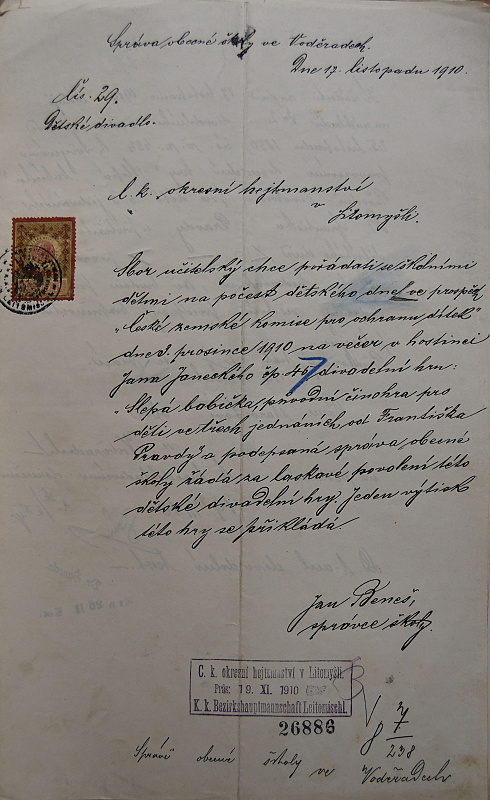 Správa obecné školy ve Voděradech.
Dne 17. listopadu 1910.
Čís. 29.
Dětské divadlo.
C. k. okresní hejtmanství
v
Litomyšli.
Sbor učitelský chce pořádati se školními
dětmi na počest dětského dne ve prospěch
"České zemské komise pro ochranu dítek"
dne prosince 1910 na večer v hostinci
Jana Janeckého čp. 45, divadelní hru:
"Slepá babička, původní činohra pro
děti ve třech jednáních, od Františka
Pravdy" a podepsaná správa obecné
školy žádá za laskavé povolení této
dětské divadelní hry. Jeden výtisk
této hry se přikládá.
Jan Beneš,
správce školy.
C. k. okresní hejtmanství v Litomyšli.
Präs: 19. XI. 1910
K. k. Bezirkshauptmannschaft Leitomischl.
26886
8 7
238
Správě obecné školy ve Voděradech